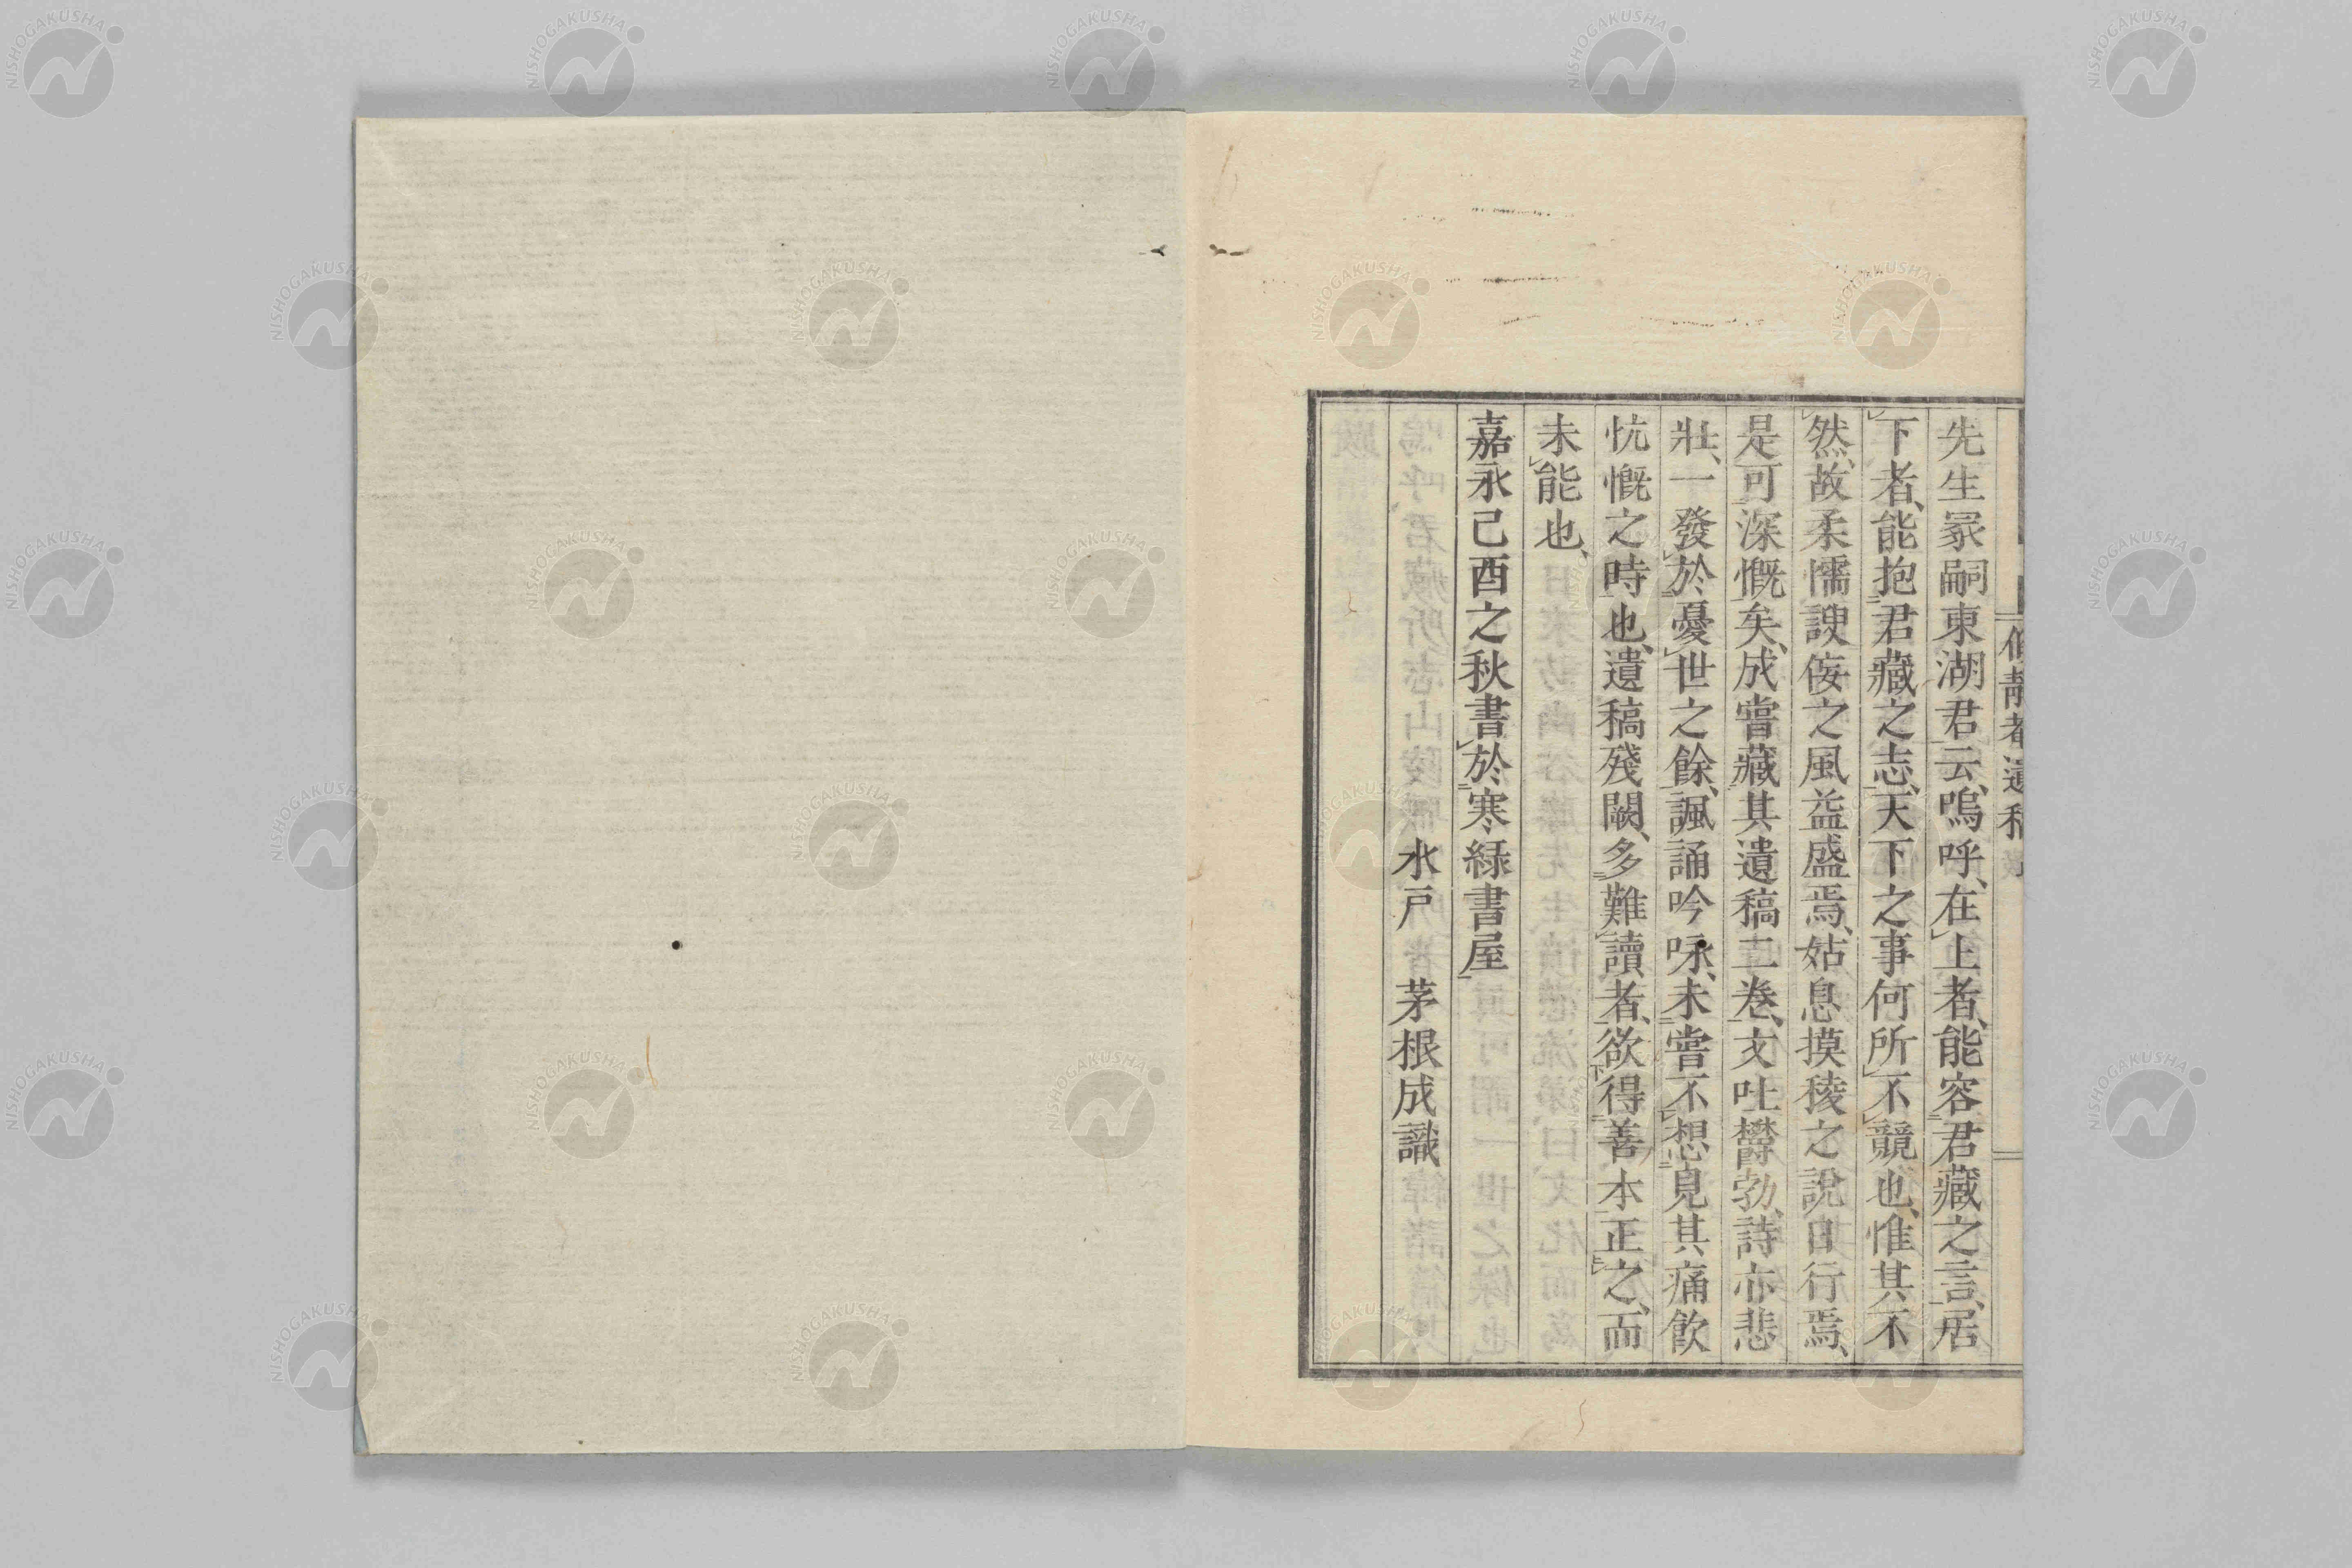 先生冢嗣東湖君云、嗚呼、在上者、能容君藏之言、居
下者、能抱君藏之志、天下之事何所不競也、惟其不
然、故柔懦諛佞之風益盛焉、姑息摸稜之說日行焉、
是可深慨矣、成嘗藏其遺稿二卷、文吐欝勃、詩亦悲
壯、一發於憂世之餘、諷誦吟咏、未嘗不想見其痛飮
忼慨之時也、遺稿殘闕、多難讀者、欲得善本正之、而
未能也、
嘉永己酉之秋書於寒綠書屋
水戶 茅根成識
NISHOGAKUSHA